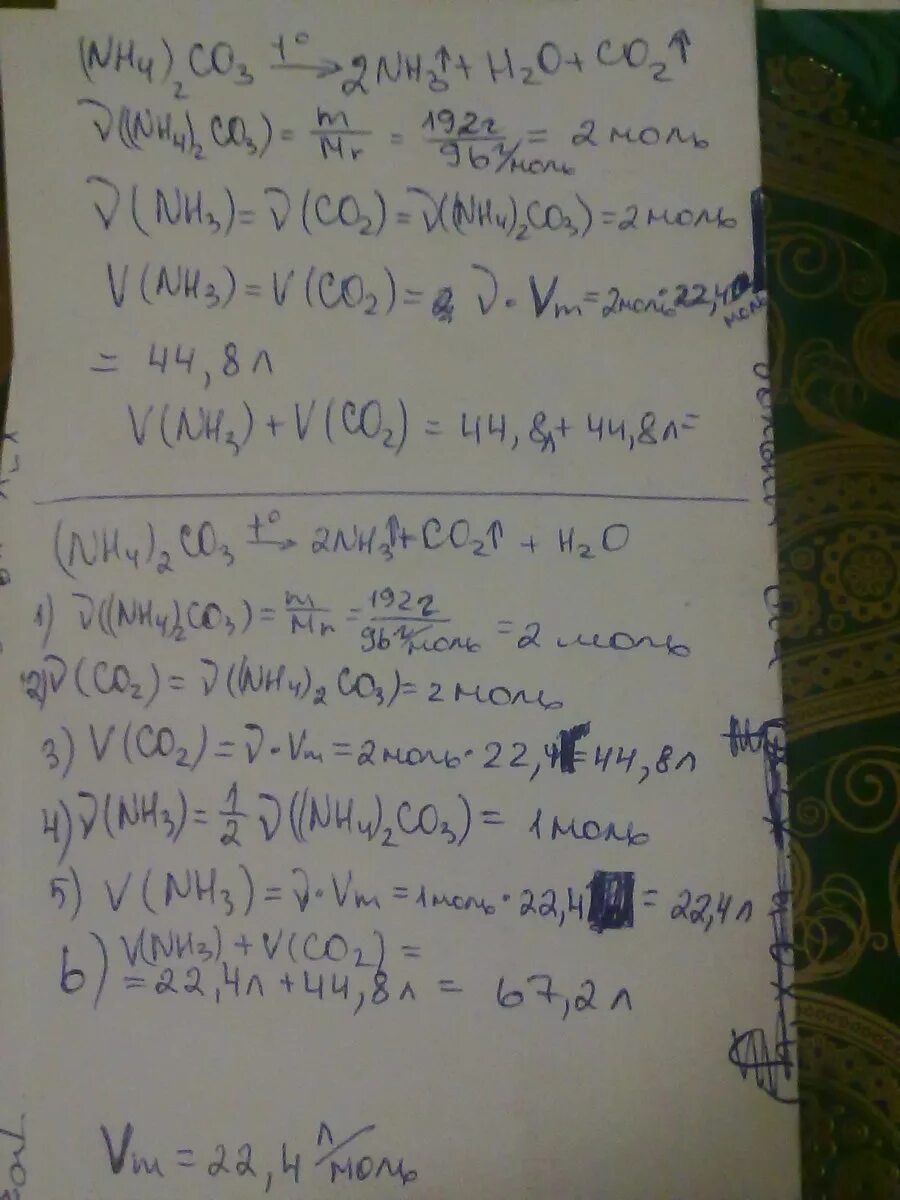 (NH4)2CO3 t°→ 2NH3↑ + H2O + CO2↑
ν((NH4)2CO3) = m/Mr = 192г/96г/моль = 2 моль
ν(NH3) = ν(CO2) = ν((NH4)2CO3) = 2 моль
V(NH3) = V(CO2) = ν · Vm = 2моль · 22,4 моль
= 44,8л
V(NH3) + V(CO2) = 44,8л + 44,8л =
(NH4)2CO3 t°→ 2NH3↑ + CO2↑ + H2O
1) ν((NH4)2CO3) = m/Mr = 192г/96г/моль = 2 моль
2) ν(CO2) = ν((NH4)2CO3) = 2 моль
3) V(CO2) = ν · Vm = 2 моль · 22,4 = 44,8л
4) ν(NH3) = 1/2 ν((NH4)2CO3) = 1 моль
5) V(NH3) = ν · Vm = 1 моль · 22,4 = 22,4л
6) V(NH3) + V(CO2) =
= 22,4л + 44,8л = 67,2л
Vm = 22,4 л/моль